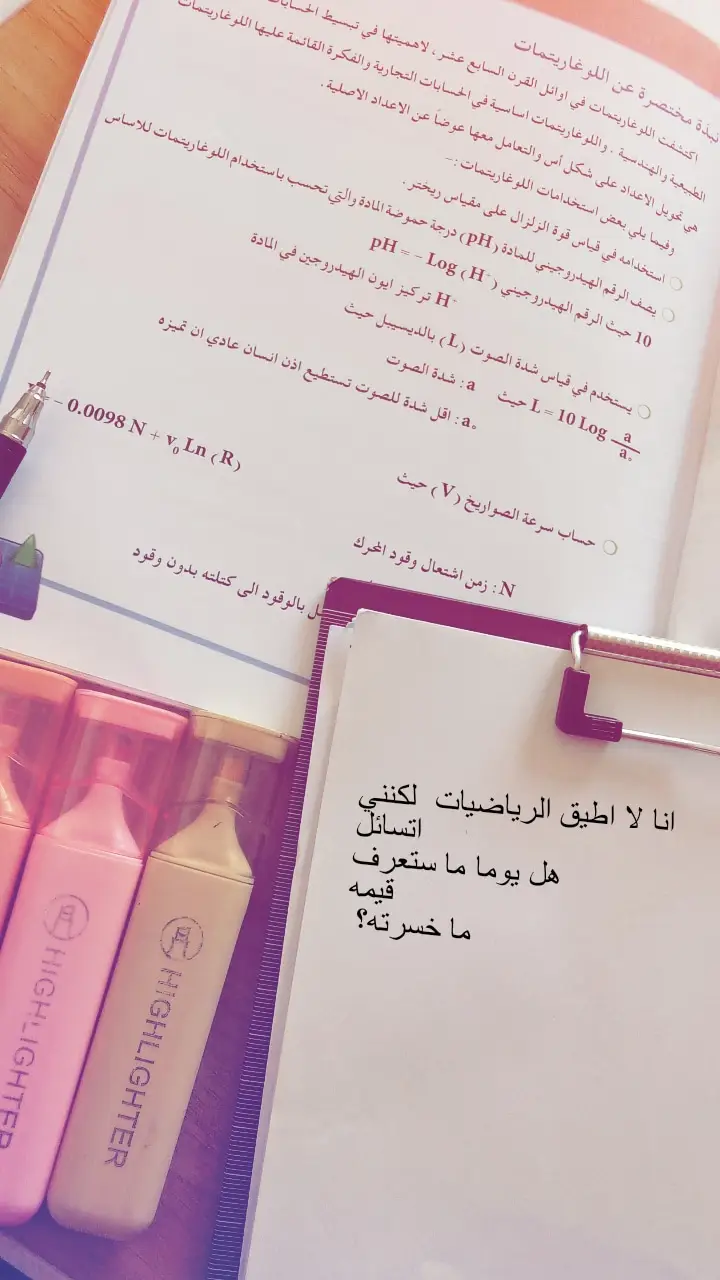 نبذة مختصرة عن اللوغاريتمات
اكتشفت اللوغاريتمات في اوائل القرن السابع عشر ، لاهميتها في تبسيط الحسابات
الطبيعية والهندسية . واللوغاريتمات اساسية في الحسابات التجارية والفكرة القائمة عليها اللوغاريتمات
هي تحويل الاعداد على شكل أس والتعامل معها عوضاً عن الاعداد الاصلية .
وفيما يلي بعض استخدامات اللوغاريتمات :–
استخدامه في قياس قوة الزلزال على مقياس ريختر .
يصف الرقم الهيدروجيني للمادة (pH) درجة حموضة المادة والتي تحسب باستخدام اللوغاريتمات للاساس
10 حيث الرقم الهيدروجيني pH = – Log ( H⁺ )
H⁺ تركيز ايون الهيدروجين في المادة
يستخدم في قياس شدة الصوت (L) بالديسيبل حيث
L = 10 Log a/a₀ حيث a : شدة الصوت
a₀ : اقل شدة للصوت تستطيع اذن انسان عادي ان تميزه
حساب سرعة الصواريخ (V) حيث
– 0.0098 N + v₀ Ln (R)
N : زمن اشتعال وقود المحرك
بالوقود الى كتلته بدون وقود
انا لا اطيق الرياضيات لكنني
اتسائل
هل يوما ما ستعرف
قيمه
ما خسرته؟
HIGHLIGHTER
HIGHLIGHTER